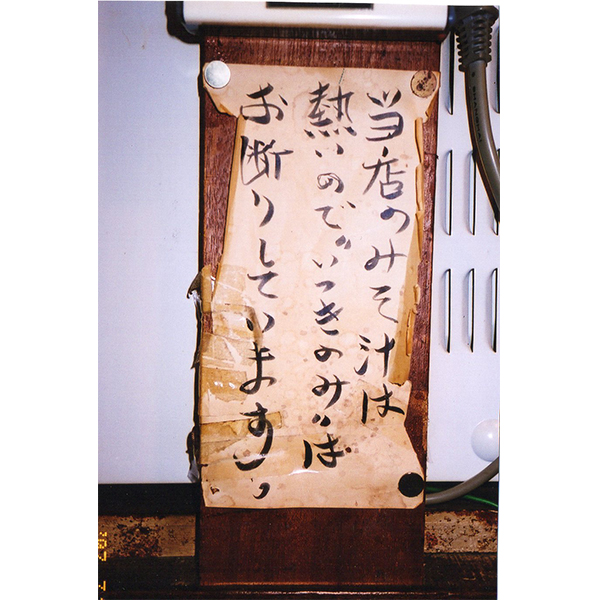 当店のみそ汁は
熱いので〝いっきのみ〟は
お断りしています